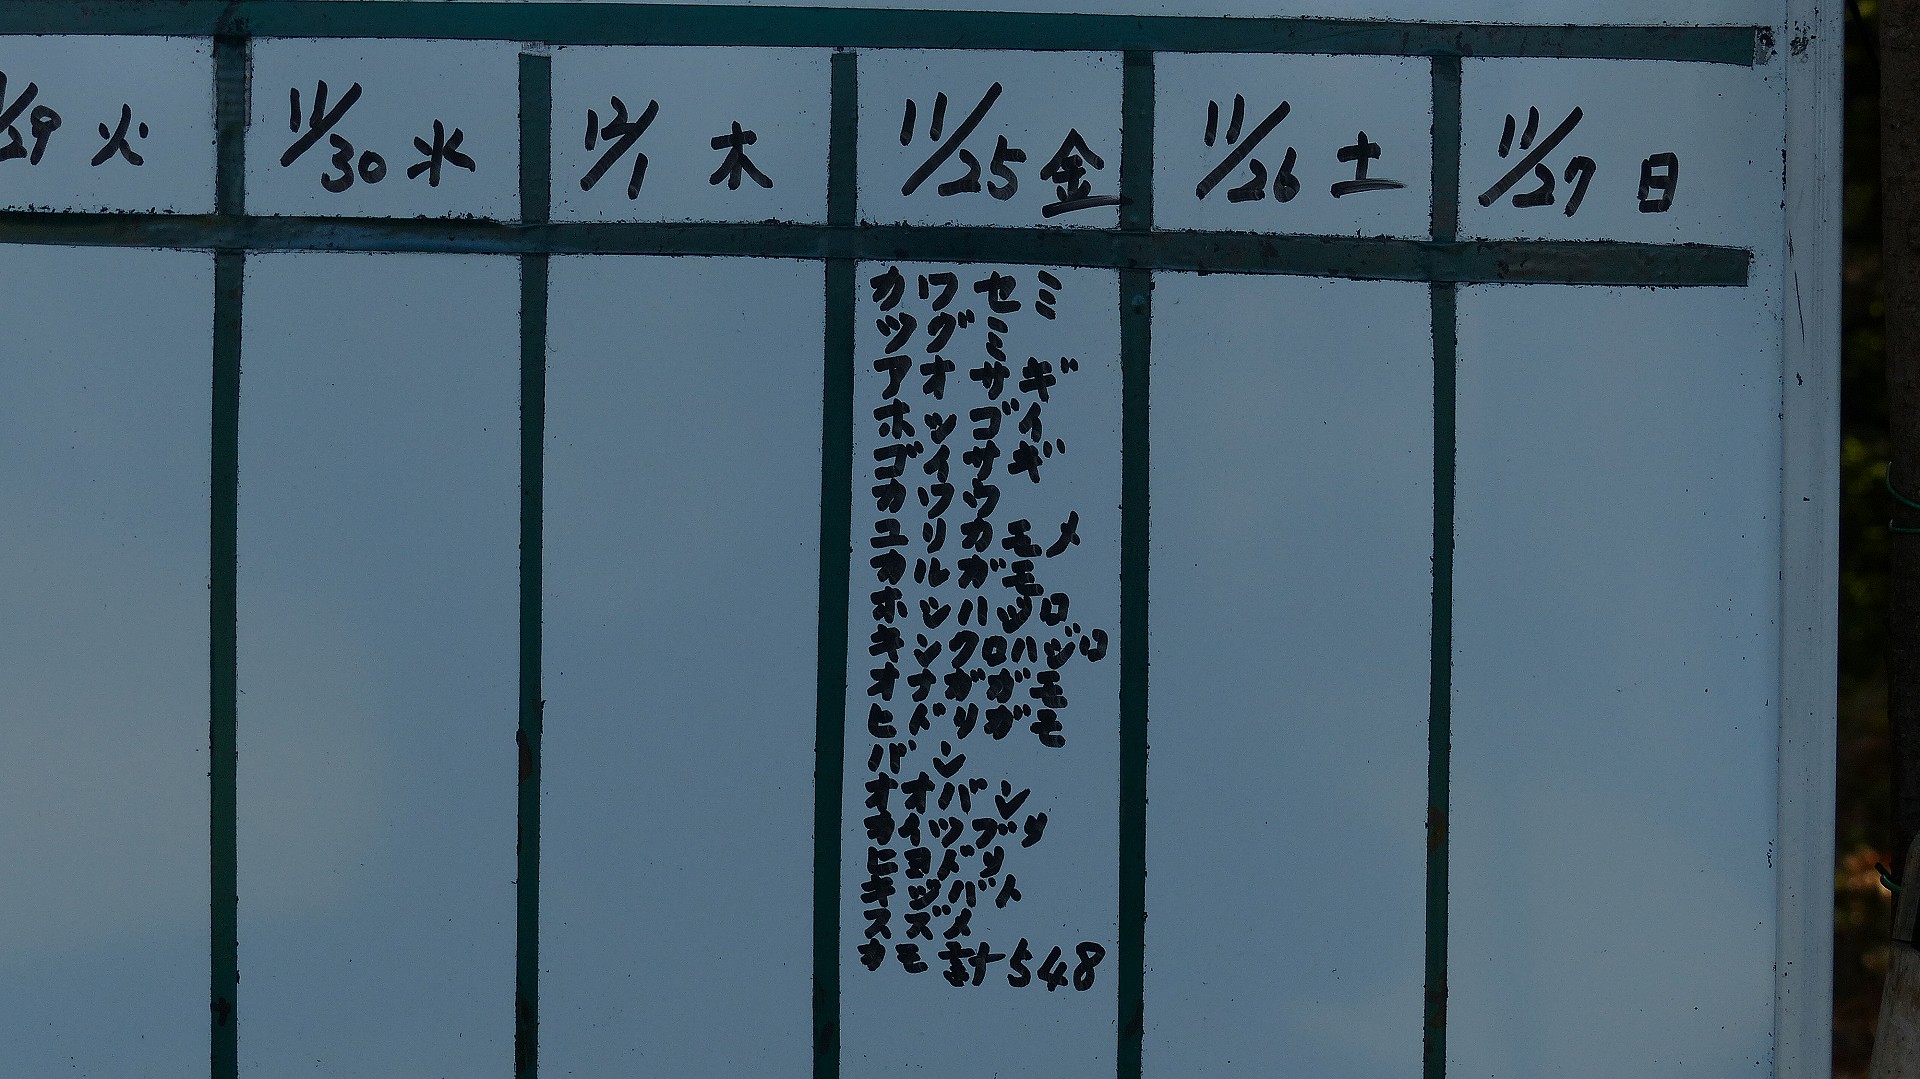 /29 火
11/30 水
12/1 木
11/25 金
11/26 土
11/27 日
カワセミ
ツグミ
アオサギ
ホシゴイ
ゴイサギ
カワウ
ユリカモメ
カルガモ
ホシハジロ
キンクロハジロ
オナガガモ
ヒドリガモ
バン
オオバン
カイツブリ
ヒヨドリ
キジバト
スズメ
カモ計548